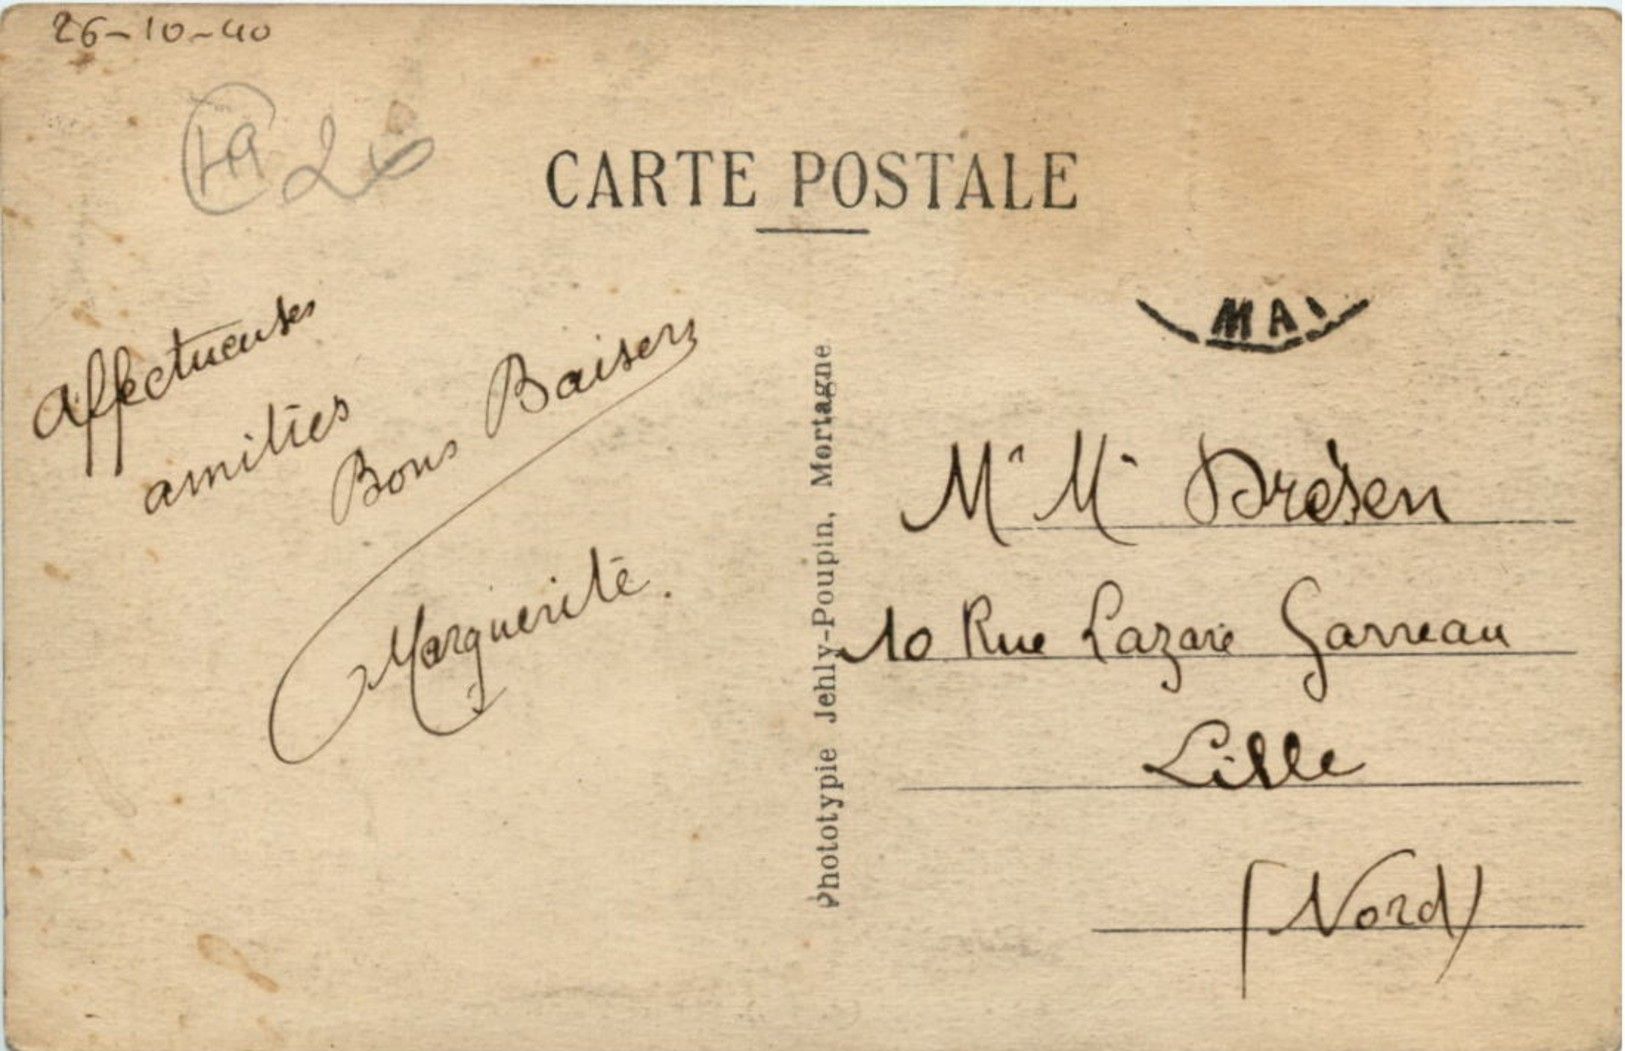 26-10-40
CARTE POSTALE
Affectueuses
amitiés
Bons Baisers
Marguerite.
Phototypie Jehly-Poupin, Mortagne
MAI
Mr Mr Drésen
10 Rue Lazare Garreau
Lille
(Nord)